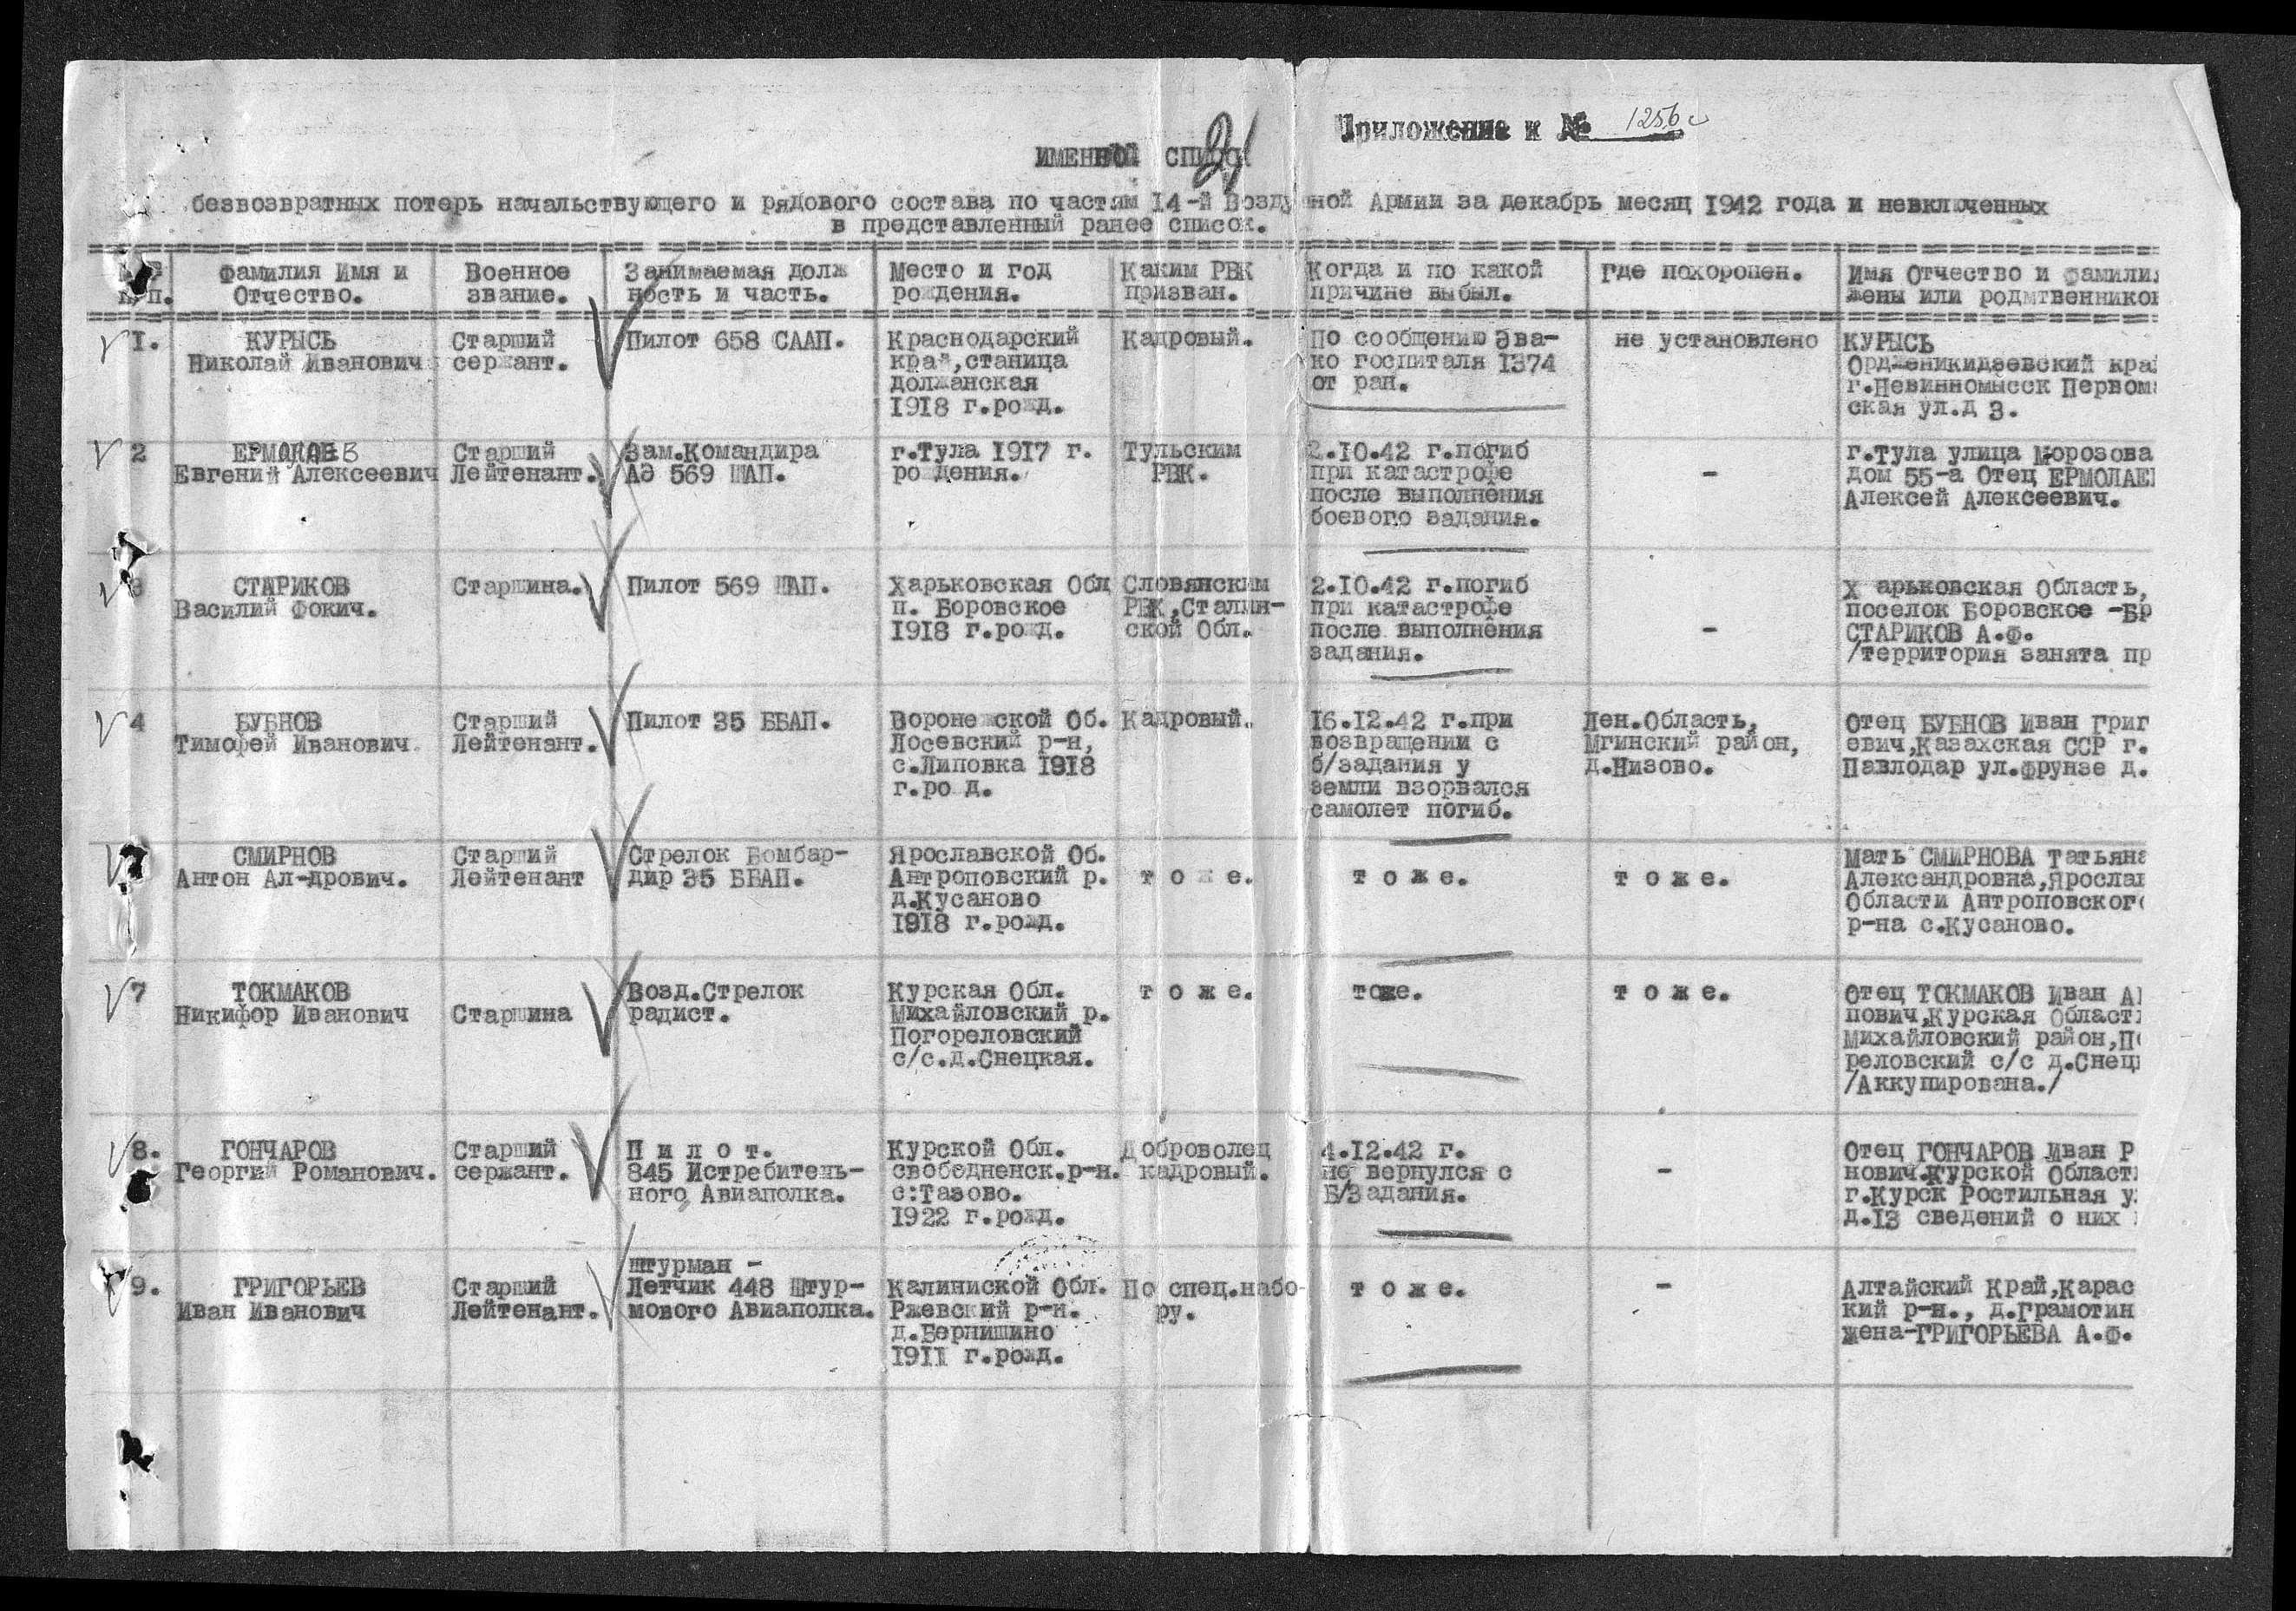 Приложение к № 1256с
21
ИМЕННОЙ СПИСОК
безвозвратных потерь начальствующего и рядового состава по частям 14-й Воздушной Армии за декабрь месяц 1942 года и невключенных
в представленный ранее список.
п/п.
Фамилия Имя и
Отчество.
Военное
звание.
Занимаемая долж
ность и часть.
Место и год
рождения.
Каким РВК
призван.
Когда и по какой
причине выбыл.
Где похоронен.
Имя Отчество и фамилия
жены или родмтвенников
1.
КУРЫСЬ
Николай Иванович
Старший
сержант.
Пилот 658 СААП.
Краснодарский
край,станица
должанская
1918 г.рожд.
Кадровый.
По сообщению Эва-
ко госпиталя 1374
от ран.
не установлено
КУРЫСЬ
Ордженикидзевский кра
г.Невинномысск Первома
ская ул.д 3.
2
ЕРМОЛАЕВ
Евгений Алексеевич
Старший
Лейтенант.
Зам.Командира
АЭ 569 ШАП.
г.Тула 1917 г.
ро дения.
Тульским
РВК.
2.10.42 г.погиб
при катастрофе
после выполнения
боевого задания.
-
г.Тула улица Морозова
дом 55-а Отец ЕРМОЛАЕ
Алексей Алексеевич.
3
СТАРИКОВ
Василий Фокич.
Старшина.
Пилот 569 ШАП.
Харьковская Обл
п. Боровское
1918 г.рожд.
Словянским
РВК,Сталин-
ской Обл.
2.10.42 г.погиб
при катастрофе
после выполнения
задания.
-
Х арьковская Область,
поселок Боровское -Бр
СТАРИКОВ А.Ф.
/территория занята пр
4
БУБНОВ
Тимофей Иванович.
Старший
Лейтенант.
Пилот 35 ББАП.
Воронежской Об.
Лосевский р-н,
с.Липовка 1918
г.ро д.
Кадровый.
16.12.42 г.при
возвращении с
б/задания у
земли взорвался
самолет погиб.
Лен.Область,
Мгинский район,
д.Низово.
Отец БУБНОВ Иван Григ
евич,Казахская ССР г.
Павлодар ул.фрунзе д.
СМИРНОВ
Антон Ал-дрович.
Старший
Лейтенант
Стрелок Бомбар-
дир 35 ББАП.
Ярославской Об.
Антроповский р.
д.Кусаново
1918 г.рожд.
т о ж е.
т о ж е.
т о ж е.
Мать СМИРНОВА Татьяна
Александровна,Яросла
Области Антроповског
р-на с.Кусаново.
7
ТОКМАКОВ
Никифор Иванович
Старшина
Возд.Стрелок
радист.
Курская Обл.
Михайловский р.
Погореловский
с/с.д.Снецкая.
т о ж е.
тоже.
т о ж е.
Отец ТОКМАКОВ Иван А
пович,Курская Област
Михайловский район,П
реловский с/с д.Снец
/Аккупирована./
8.
ГОНЧАРОВ
Георгий Романович.
Старший
сержант.
П и л о т.
845 Истребитель-
ного Авиаполка.
Курской Обл.
свободненск.р-н.
с:Тазово.
1922 г.рожд.
Доброволец
кадровый.
4.12.42 г.
не вернулся с
Б/Задания.
-
Отец ГОНЧАРОВ Иван Р
нович.Курской Област
г.Курск Ростильная у
д.13 сведений о них
9.
ГРИГОРЬЕВ
Иван Иванович
Старший
Лейтенант.
штурман -
Летчик 448 Штур-
мового Авиаполка.
Калиниской Обл.
Ржевский р-н.
д.Берлишино
1911 г.рожд.
По спец.набо-
ру.
т о ж е.
-
Алтайский Край,Карас
кий р-н., д.Грамотин
жена-ГРИГОРЬЕВА А.Ф.